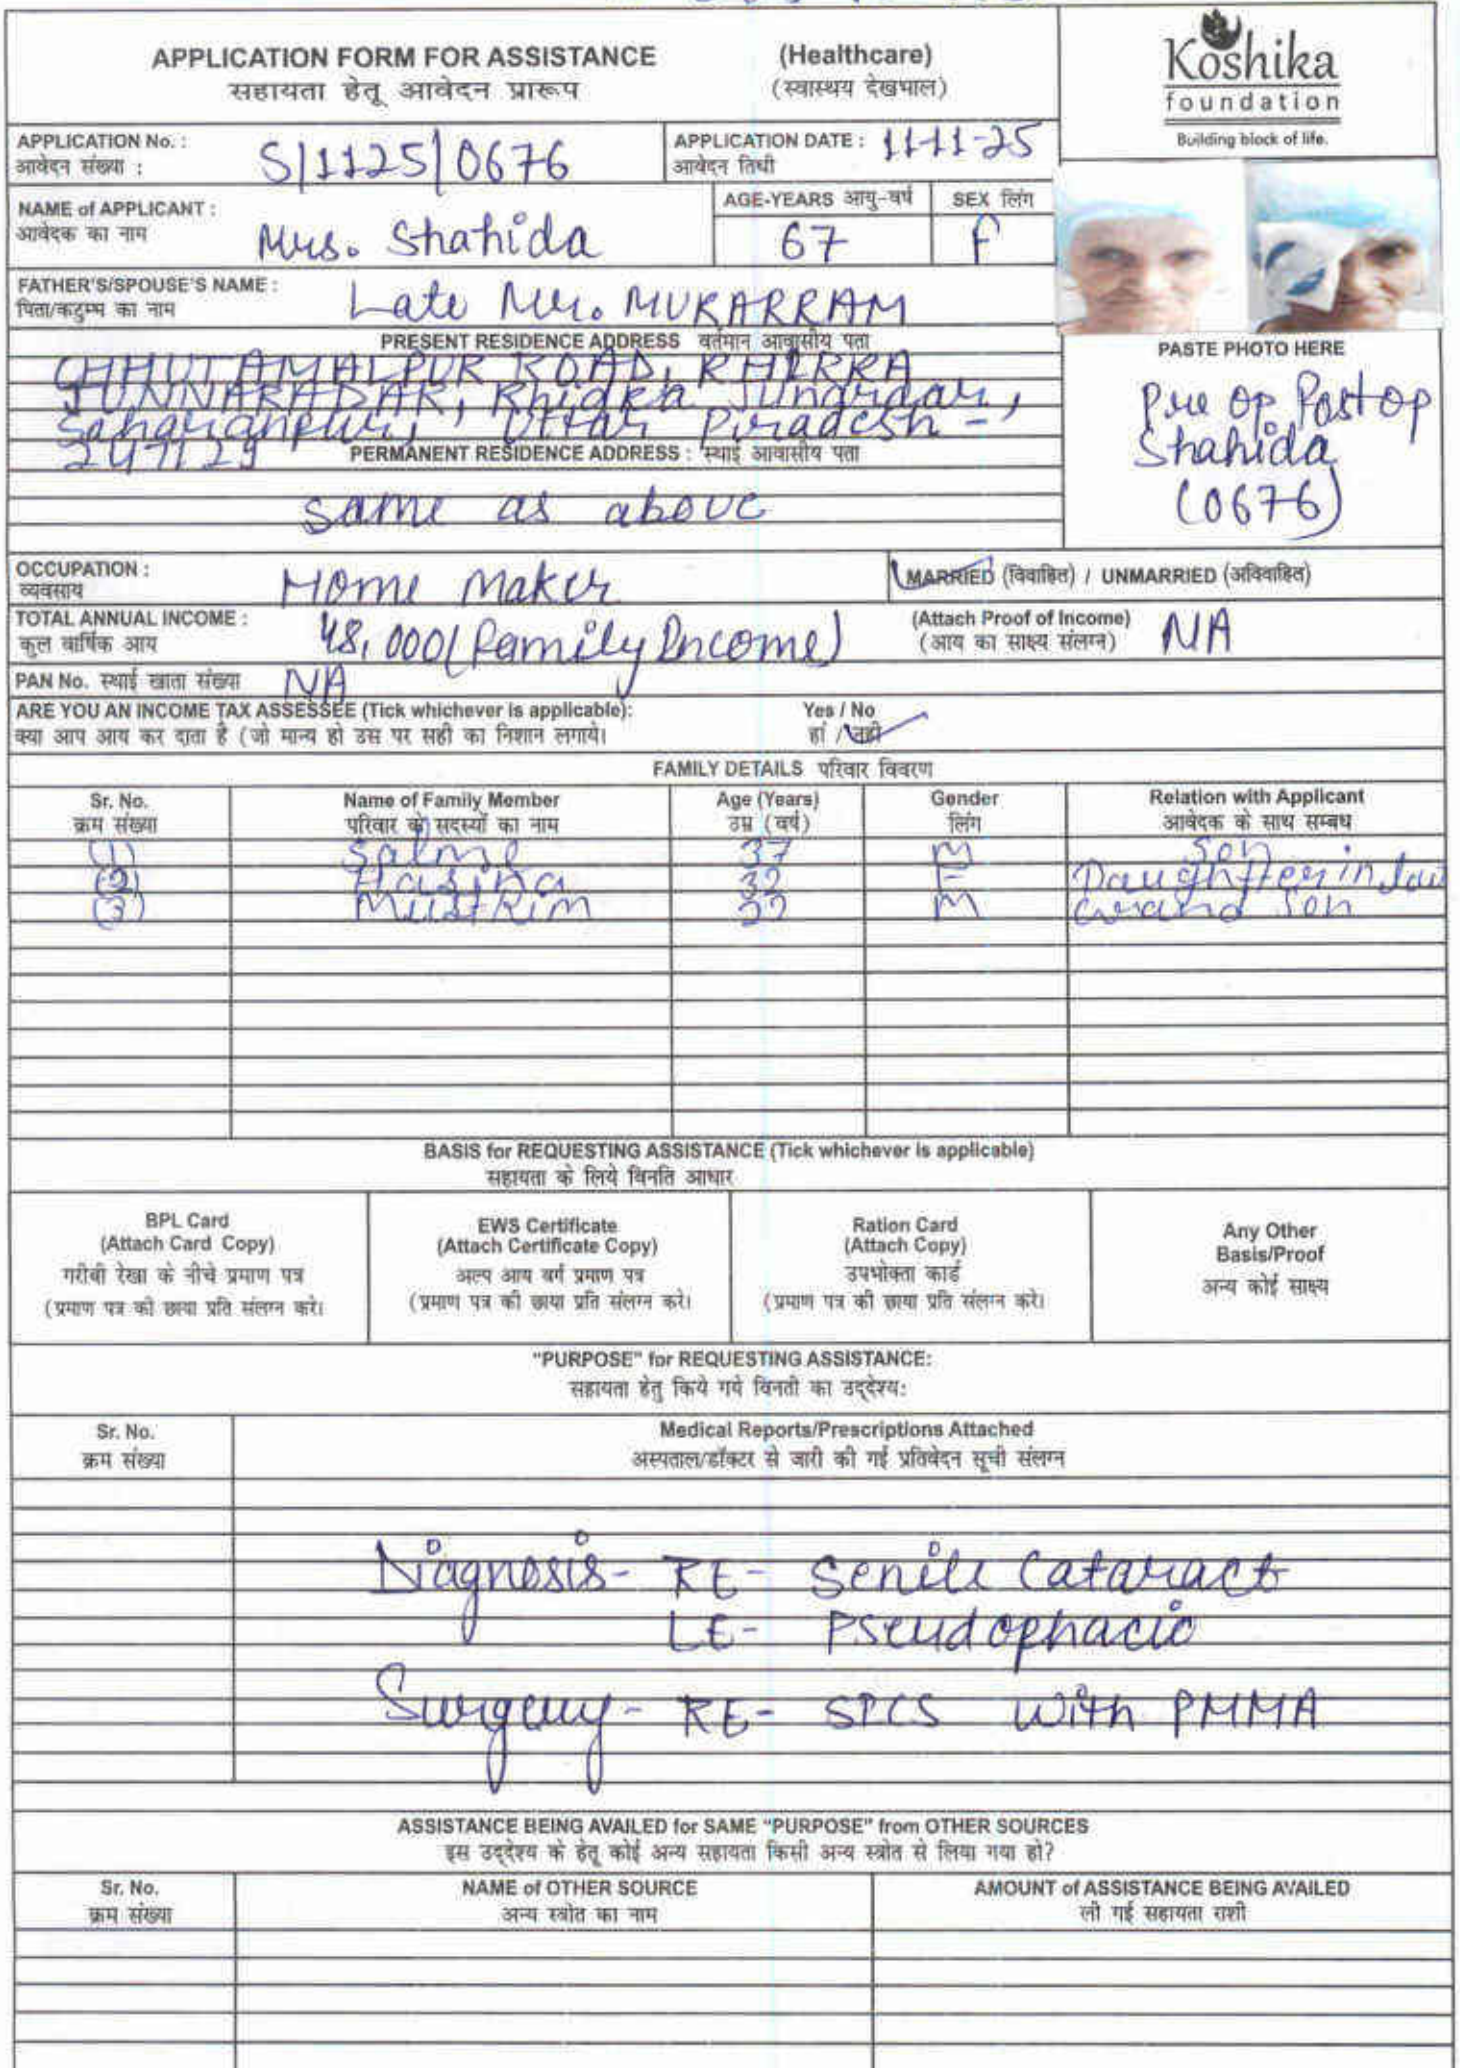 APPLICATION FORM FOR ASSISTANCE (Healthcare)
सहायता हेतू आवेदन प्रारूप (स्वास्थय देखभाल)
Koshika
foundation
Building block of life.
APPLICATION No. : S/1125/0676 APPLICATION DATE : 11-11-25
आवेदन संख्या : आवेदन तिथी
NAME of APPLICANT : Mrs. Shahida AGE-YEARS आयु-वर्ष 67 SEX लिंग F
आवेदक का नाम
FATHER'S/SPOUSE'S NAME : Late Mr. MUKARRAM
पिता/कटुम्प का नाम
PRESENT RESIDENCE ADDRESS वर्तमान आवासीय पता
CHHUTAMALPUR ROAD, KHIRKA
JUNNARADAR, Khidka Junardar,
Saharanpur, Uttar Pradesh -
247129
PERMANENT RESIDENCE ADDRESS : स्थाई आवासीय पता
same as above
PASTE PHOTO HERE
Pre op Post op
Shahida
(0676)
OCCUPATION : Home Maker MARRIED (विवाहित) / UNMARRIED (अविवाहित)
व्यवसाय
TOTAL ANNUAL INCOME : 48,000 (Family Income) (Attach Proof of Income) NA
कुल वार्षिक आय (आय का साक्ष्य संलग्न)
PAN No. स्थाई खाता संख्या NA
ARE YOU AN INCOME TAX ASSESSEE (Tick whichever is applicable): Yes / No
क्या आप आय कर दाता है (जो मान्य हो उस पर सही का निशान लगाये। हां / नही
FAMILY DETAILS परिवार विवरण
Sr. No. Name of Family Member Age (Years) Gender Relation with Applicant
क्रम संख्या परिवार के सदस्यों का नाम उम्र (वर्ष) लिंग आवेदक के साथ सम्बध
(1) Salme 37 M Son
(2) Hasina 32 F Daughter in law
(3) Mustkim M Grand Son
BASIS for REQUESTING ASSISTANCE (Tick whichever is applicable)
सहायता के लिये विनति आधार
BPL Card
(Attach Card Copy)
गरीबी रेखा के नीचे प्रमाण पत्र
(प्रमाण पत्र की छाया प्रति संलग्न करे।
EWS Certificate
(Attach Certificate Copy)
अल्प आय वर्ग प्रमाण पत्र
(प्रमाण पत्र की छाया प्रति संलग्न करे।
Ration Card
(Attach Copy)
उपभोक्ता कार्ड
(प्रमाण पत्र की छाया प्रति संलग्न करे।
Any Other
Basis/Proof
अन्य कोई साक्ष्य
"PURPOSE" for REQUESTING ASSISTANCE:
सहायता हेतु किये गये विनती का उद्देश्य:
Sr. No. Medical Reports/Prescriptions Attached
क्रम संख्या अस्पताल/डॉक्टर से जारी की गई प्रतिवेदन सूची संलग्न
Diagnosis- RE- Senile Cataract
LE- Pseudophacic
Surgery- RE- SICS with PMMA
ASSISTANCE BEING AVAILED for SAME "PURPOSE" from OTHER SOURCES
इस उद्देश्य के हेतू कोई अन्य सहायता किसी अन्य स्त्रोत से लिया गया हो?
Sr. No. NAME of OTHER SOURCE AMOUNT of ASSISTANCE BEING AVAILED
क्रम संख्या अन्य स्त्रोत का नाम ली गई सहायता राशी